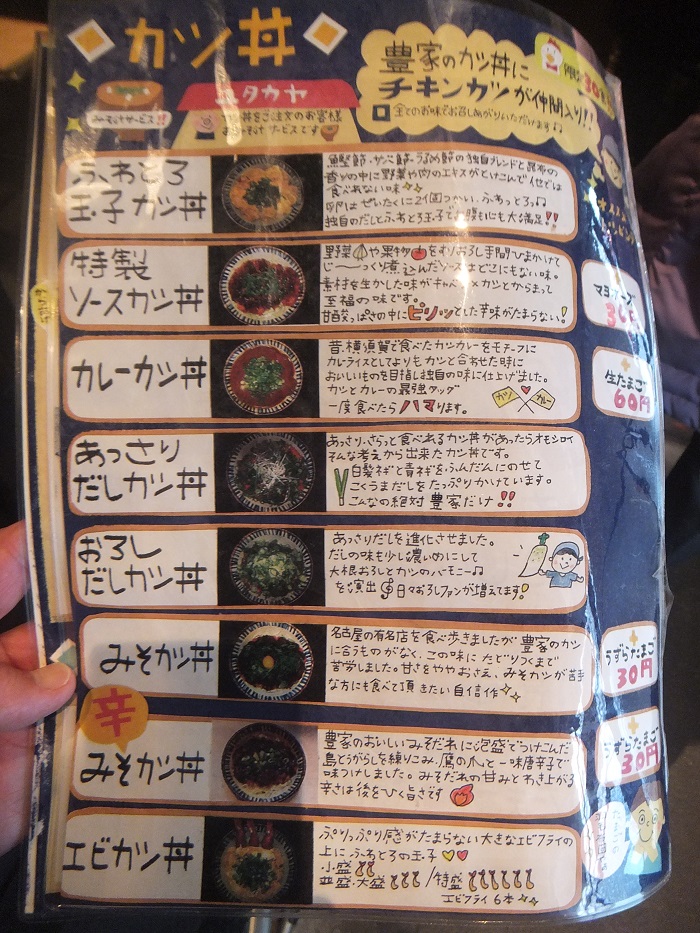 カツ丼
豊家のカツ丼に
チキンカツが仲間入り!!
全てのお味でお召しあがりいただけます♫
みそ汁サービス!!
ユタカヤ
カツ丼をご注文のお客様
おみそ汁サービスです
ふわとろ
玉子カツ丼
魚堅節・サバ節・うるめ節の独自ブレンドと昆布の
香りの中に野菜や肉のエキスがとけこんで他では
食べれない味
卵はぜいたくに2個つかい、ふわっとろっ♫
独自のだしとふわとろ玉子でお腹も心も大満足!!
特製
ソースカツ丼
野菜や果物をすりおろし手間ひまかけて
じ〜〜っくり煮込んだソースはどこにもない味。
素材を生かした味がキャベツとカツとからまって
至福の味です。
甘酸っぱさの中にピリッとした辛味がたまらない!
マヨネーズ
30円
カレーカツ丼
昔、横須賀で食べたカツカレーをモチーフに
カレーライスとしてよりもカツと合わせた時に
おいしいものを目指し独自の味に仕上げました。
カツとカレーの最強タッグ
一度食べたらハマります。
カツ カレー
+
生たまご
60円
あっさり
だしカツ丼
あっさり、さらっと食べれるカツ丼があったらオモシロイ
そんな考えから出来たカツ丼です。
白髪ネギと青ネギをふんだんにのせて
こくうまだしをたっぷりかけています。
こんなの絶対豊家だけ!!
おろし
だしカツ丼
あっさりだしを進化させました。
だしの味も少し濃いめにして
大根おろしとカツのハーモニー♫
を演出 日々おろしファンが増えてます!
みそカツ丼
名古屋の有名店を食べ歩きましたが豊家のカツ
に合うものがなく、この味にたどりつくまで
苦労しました。甘さをややおさえ、みそカツが苦手
な方にも食べて頂きたい自信作
+
うずらたまご
30円
辛
みそカツ丼
豊家のおいしいみそだれに泡盛でつけこんだ
島とうがらしを練りこみ、鷹の爪と一味唐辛子で
味つけしました。みそだれの甘みとわき上がる
辛さは後をひく旨さです
+
うずらたまご
30円
エビカツ丼
ぷりっぷり感がたまらない大きなエビフライの
上にふわとろの玉子
小盛
並盛・大盛 / 特盛
エビフライ6本